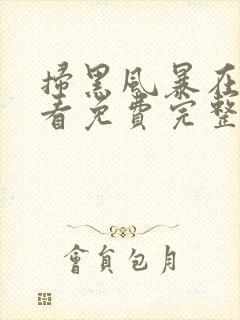 掃黑風暴在
看免費完整
會員包月